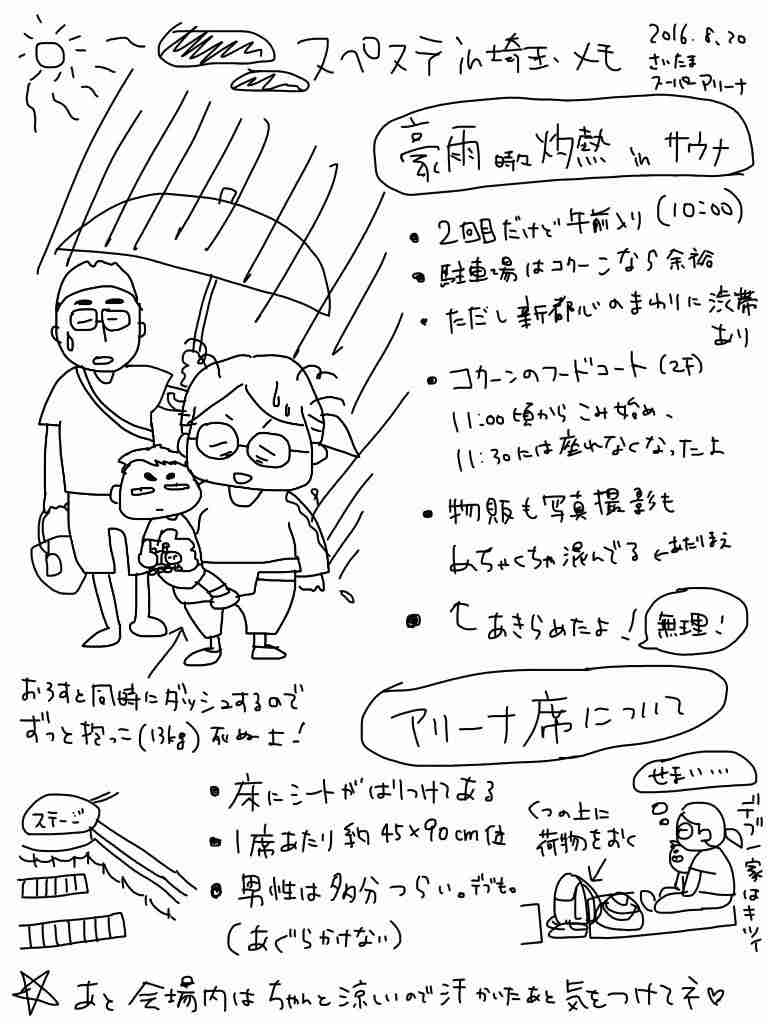 スペステin埼玉、メモ
2016.8.20
さいたま
スーパーアリーナ
豪雨時々灼熱inサウナ
・2回目だけど午前入り(10:00)
・駐車場はコクーンなら余裕
・ただし新都心のまわりに渋滞
あり
・コクーンのフードコート(2F)
11:00頃からこみ始め、
11:30には座れなくなったよ
・物販も写真撮影も
めちゃくちゃ混んでる ←あたりまえ
・↑あきらめたよ! 無理!
おろすと同時にダッシュするので
ずっと抱っこ(13kg)死ぬよ!
アリーナ席について
ステージ
・床にシートがはりつけてある
・1席あたり約45×90cm位
・男性は多分つらい。デブも。
(あぐらかけない)
くつの上に
荷物をおく
せまい…
デブ一家はキツイ
☆あと会場内はちゃんと涼しいので汗かいたあと気をつけてネ♡